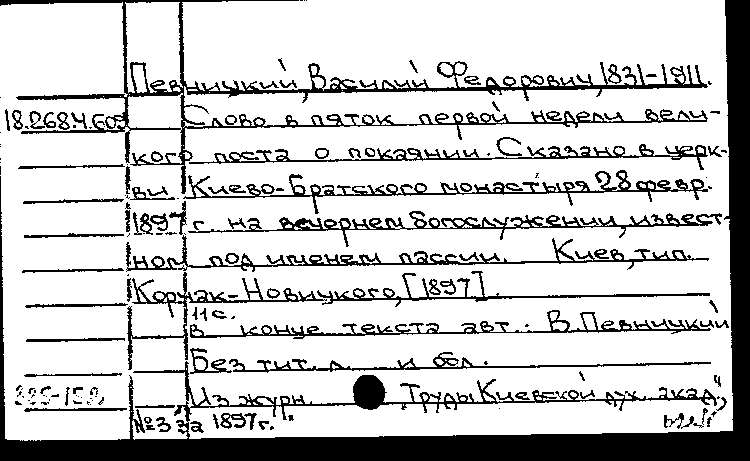 Певницкий, Василий Федорович, 1831-1911.
18.268.4.609 Слово в пяток первой недели вели-
кого поста о покаянии. Сказано в церк-
ви Киево-Братского монастыря 28 февр.
1897 г. на вечернем богослужении, извест-
ном под именем пассии. Киев, тип.
Корчак-Новицкого, [1897].
11 с.
В конце текста авт.: В. Певницкий
Без тит. л. и обл.
Из журн. "Труды Киевской дух. акад.",
№3 за 1897 г."